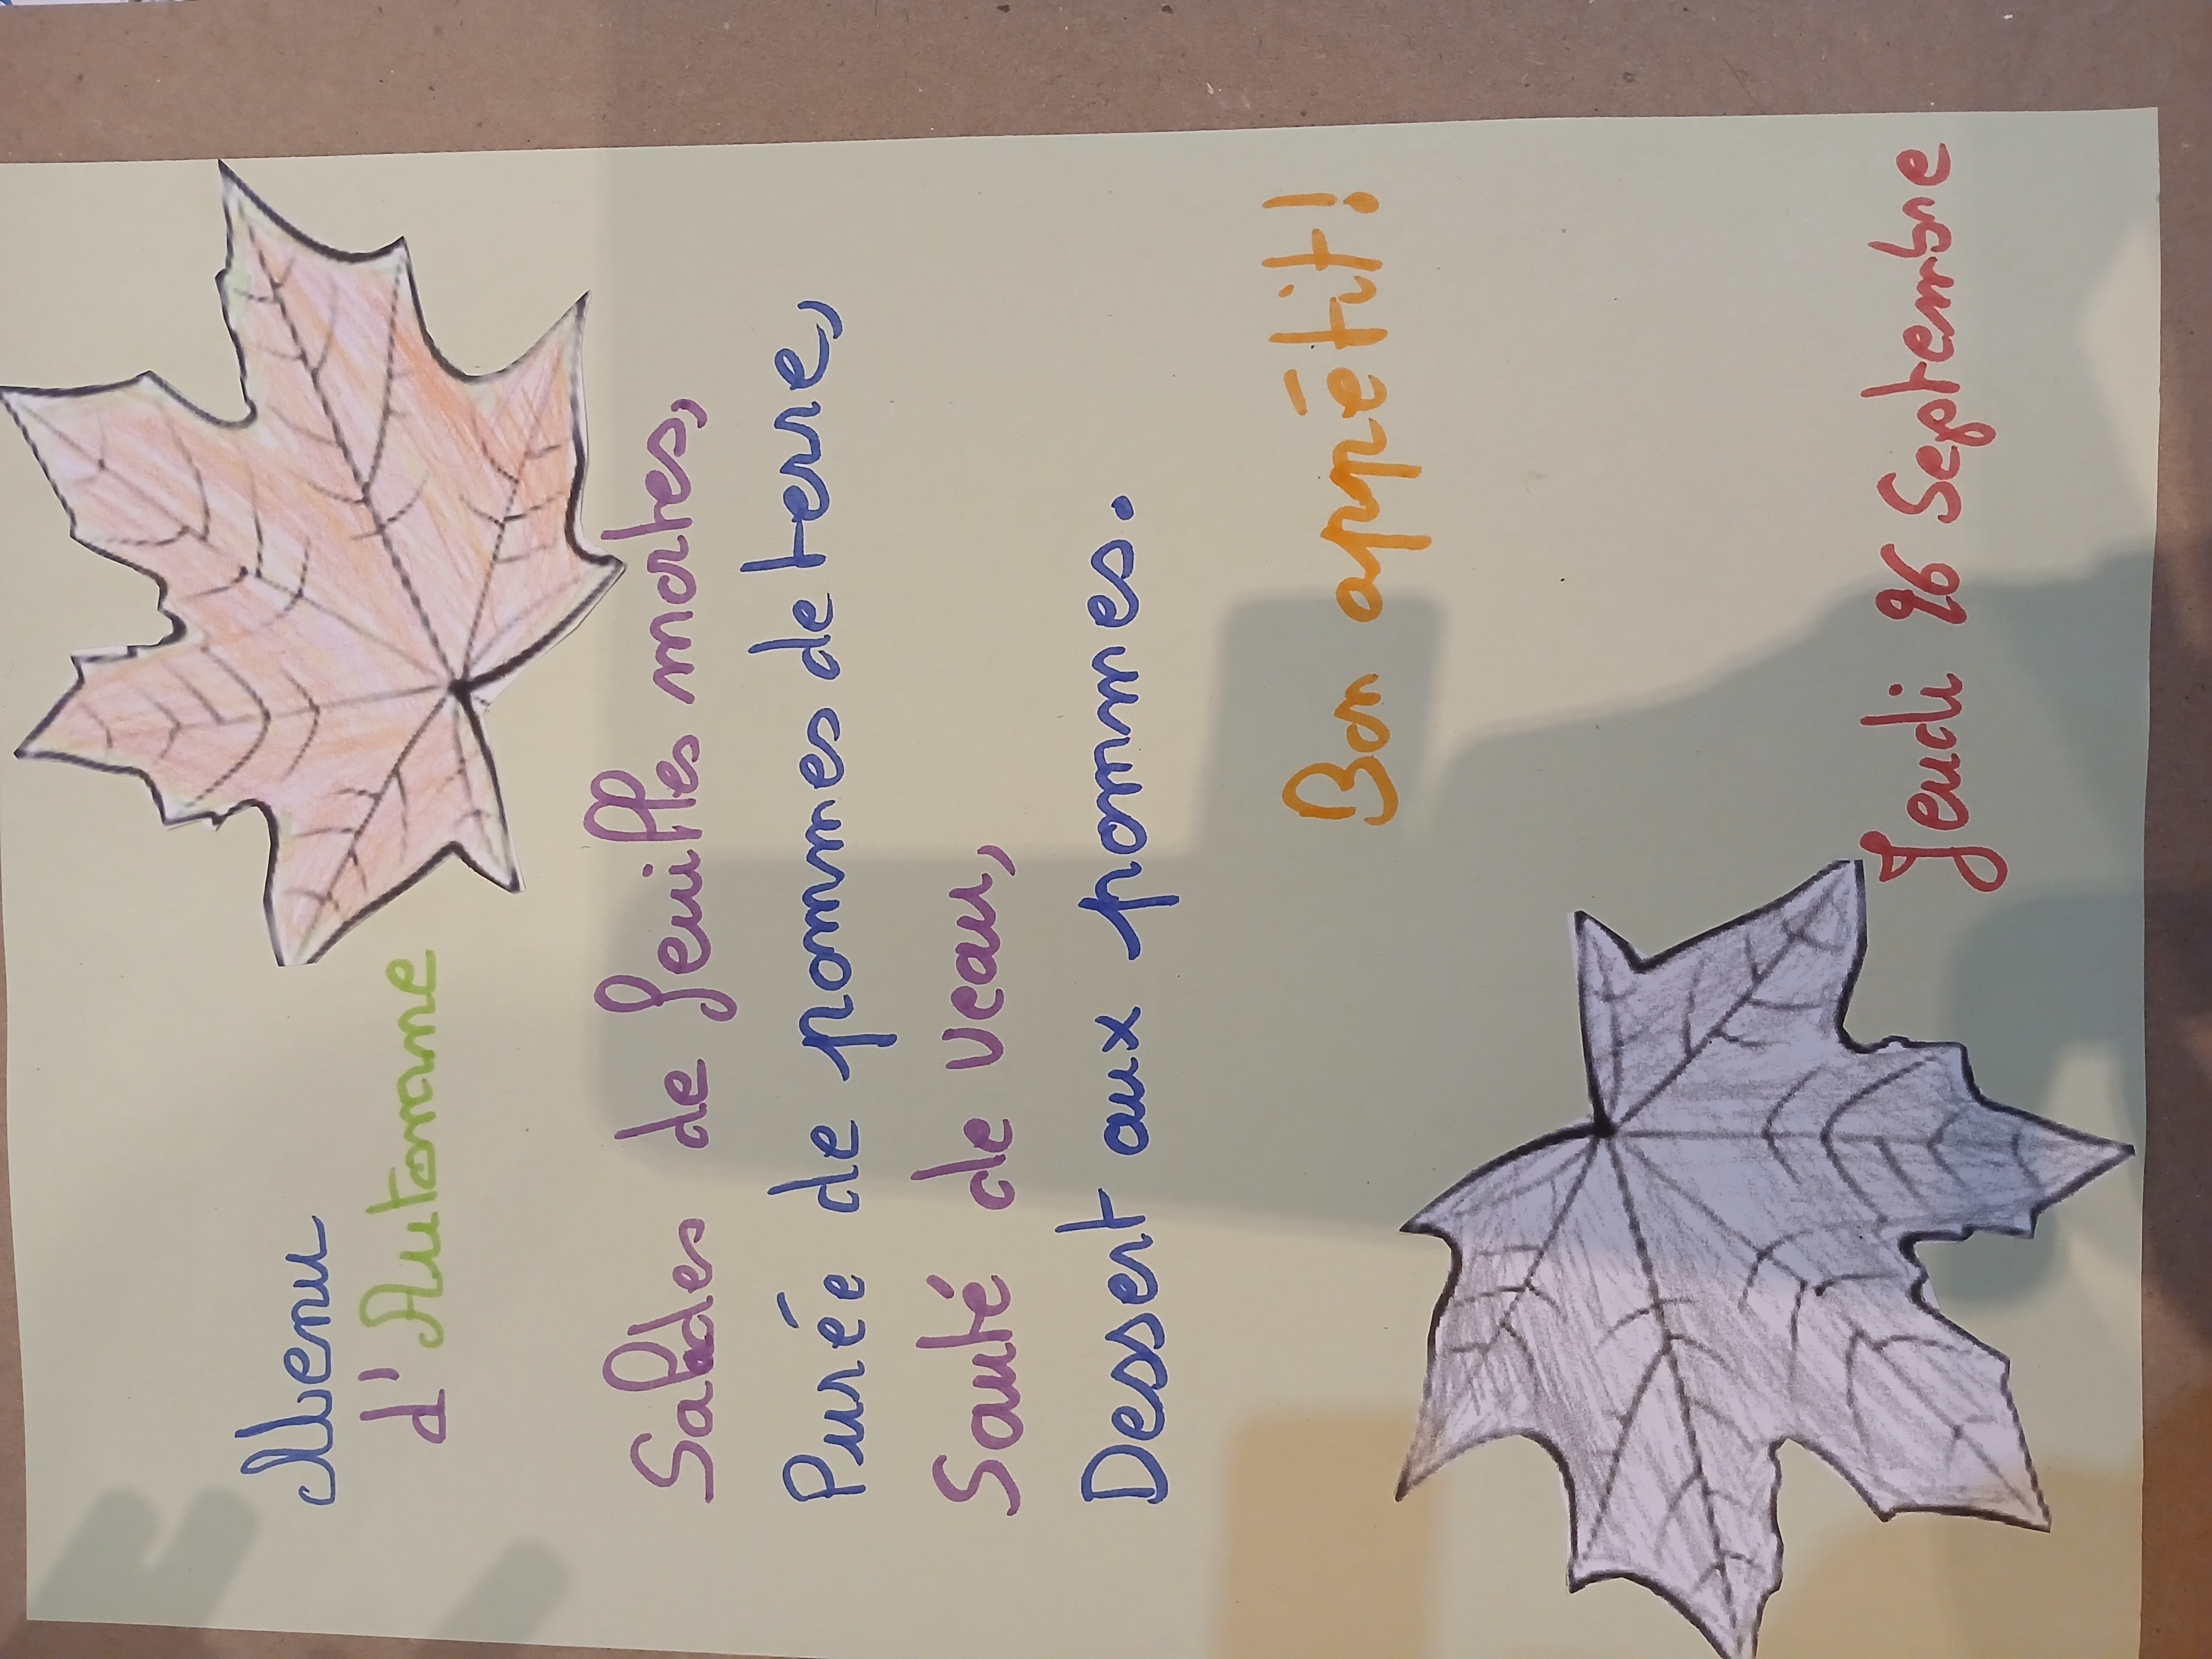 Menu
d'Automne
Salades de feuilles mortes,
Purée de pommes de terre,
Sauté de veau,
Dessert aux pommes.
Bon appétit!
Jeudi 26 Septembre